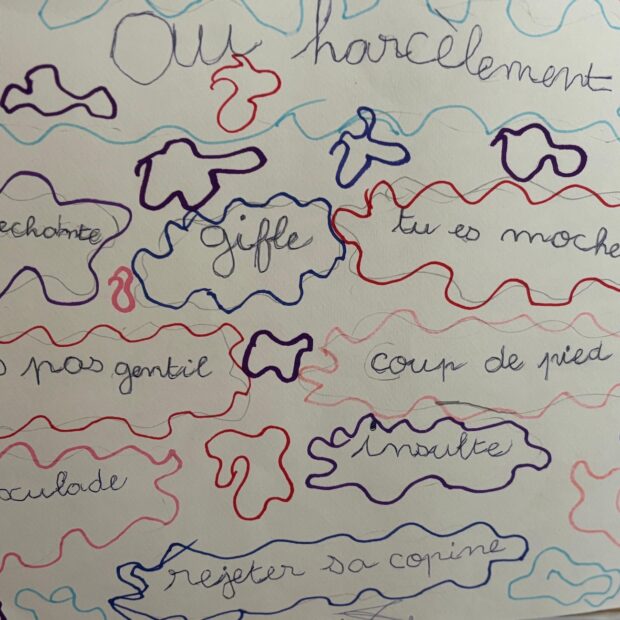 Au harcèlement
echante
gifle
tu es moche
s pas gentil
coup de pied
insulte
sculade
rejeter sa copine